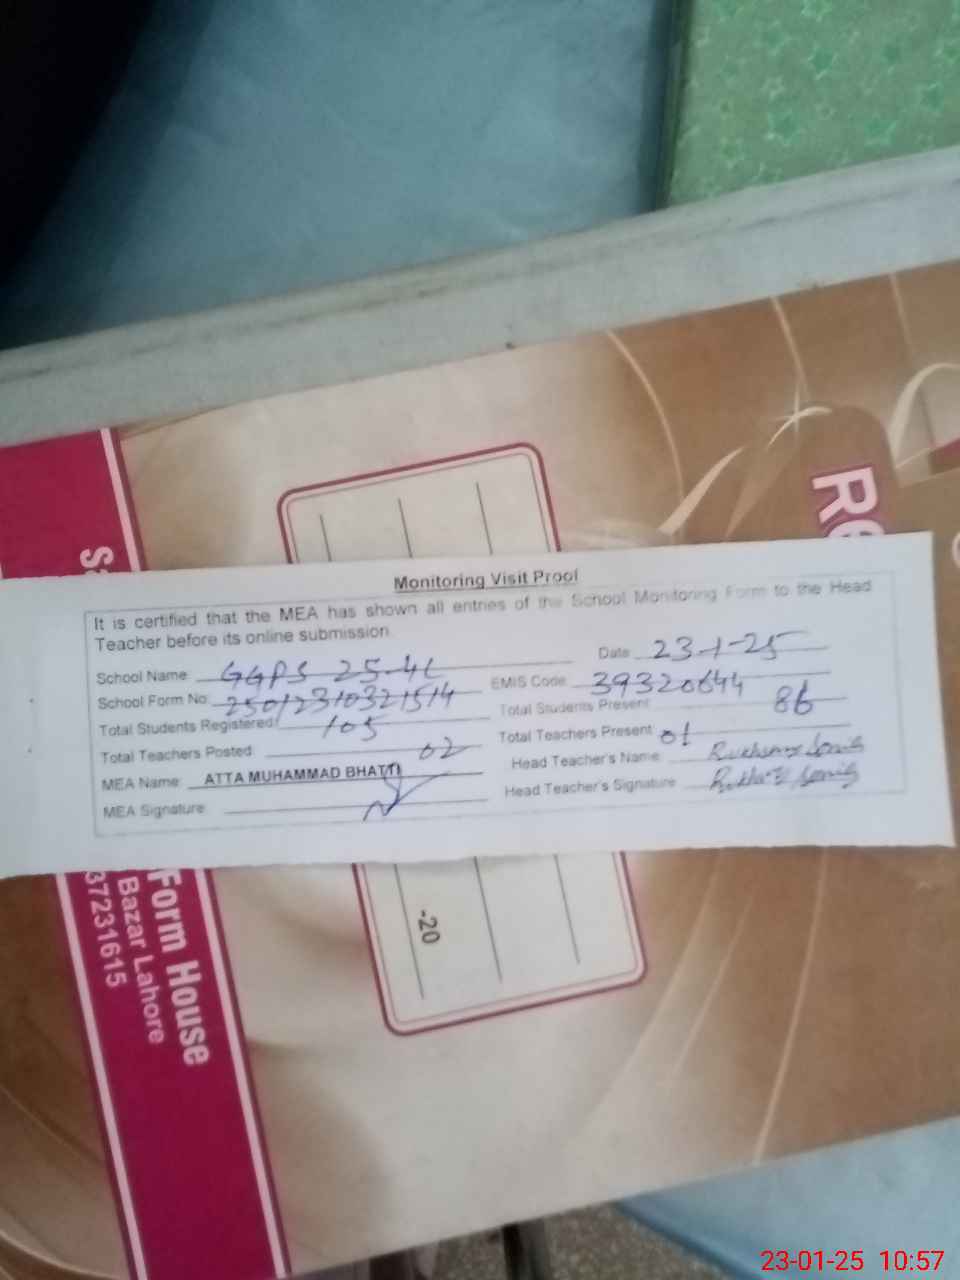 Monitoring Visit Proof
It is certified that the MEA has shown all entries of the School Monitoring Form to the Head
Teacher before its online submission.
School Name GGPS 25-4L Date 23-1-25
School Form No: EMIS Code 39320644
Total Students Registered: 105 Total Students Present 86
Total Teachers Posted: 02 Total Teachers Present 01
MEA Name: ATTA MUHAMMAD BHATTI Head Teacher's Name
MEA Signature: Head Teacher's Signature
Form House
Bazar Lahore
37231615
-20
23-01-25 10:57